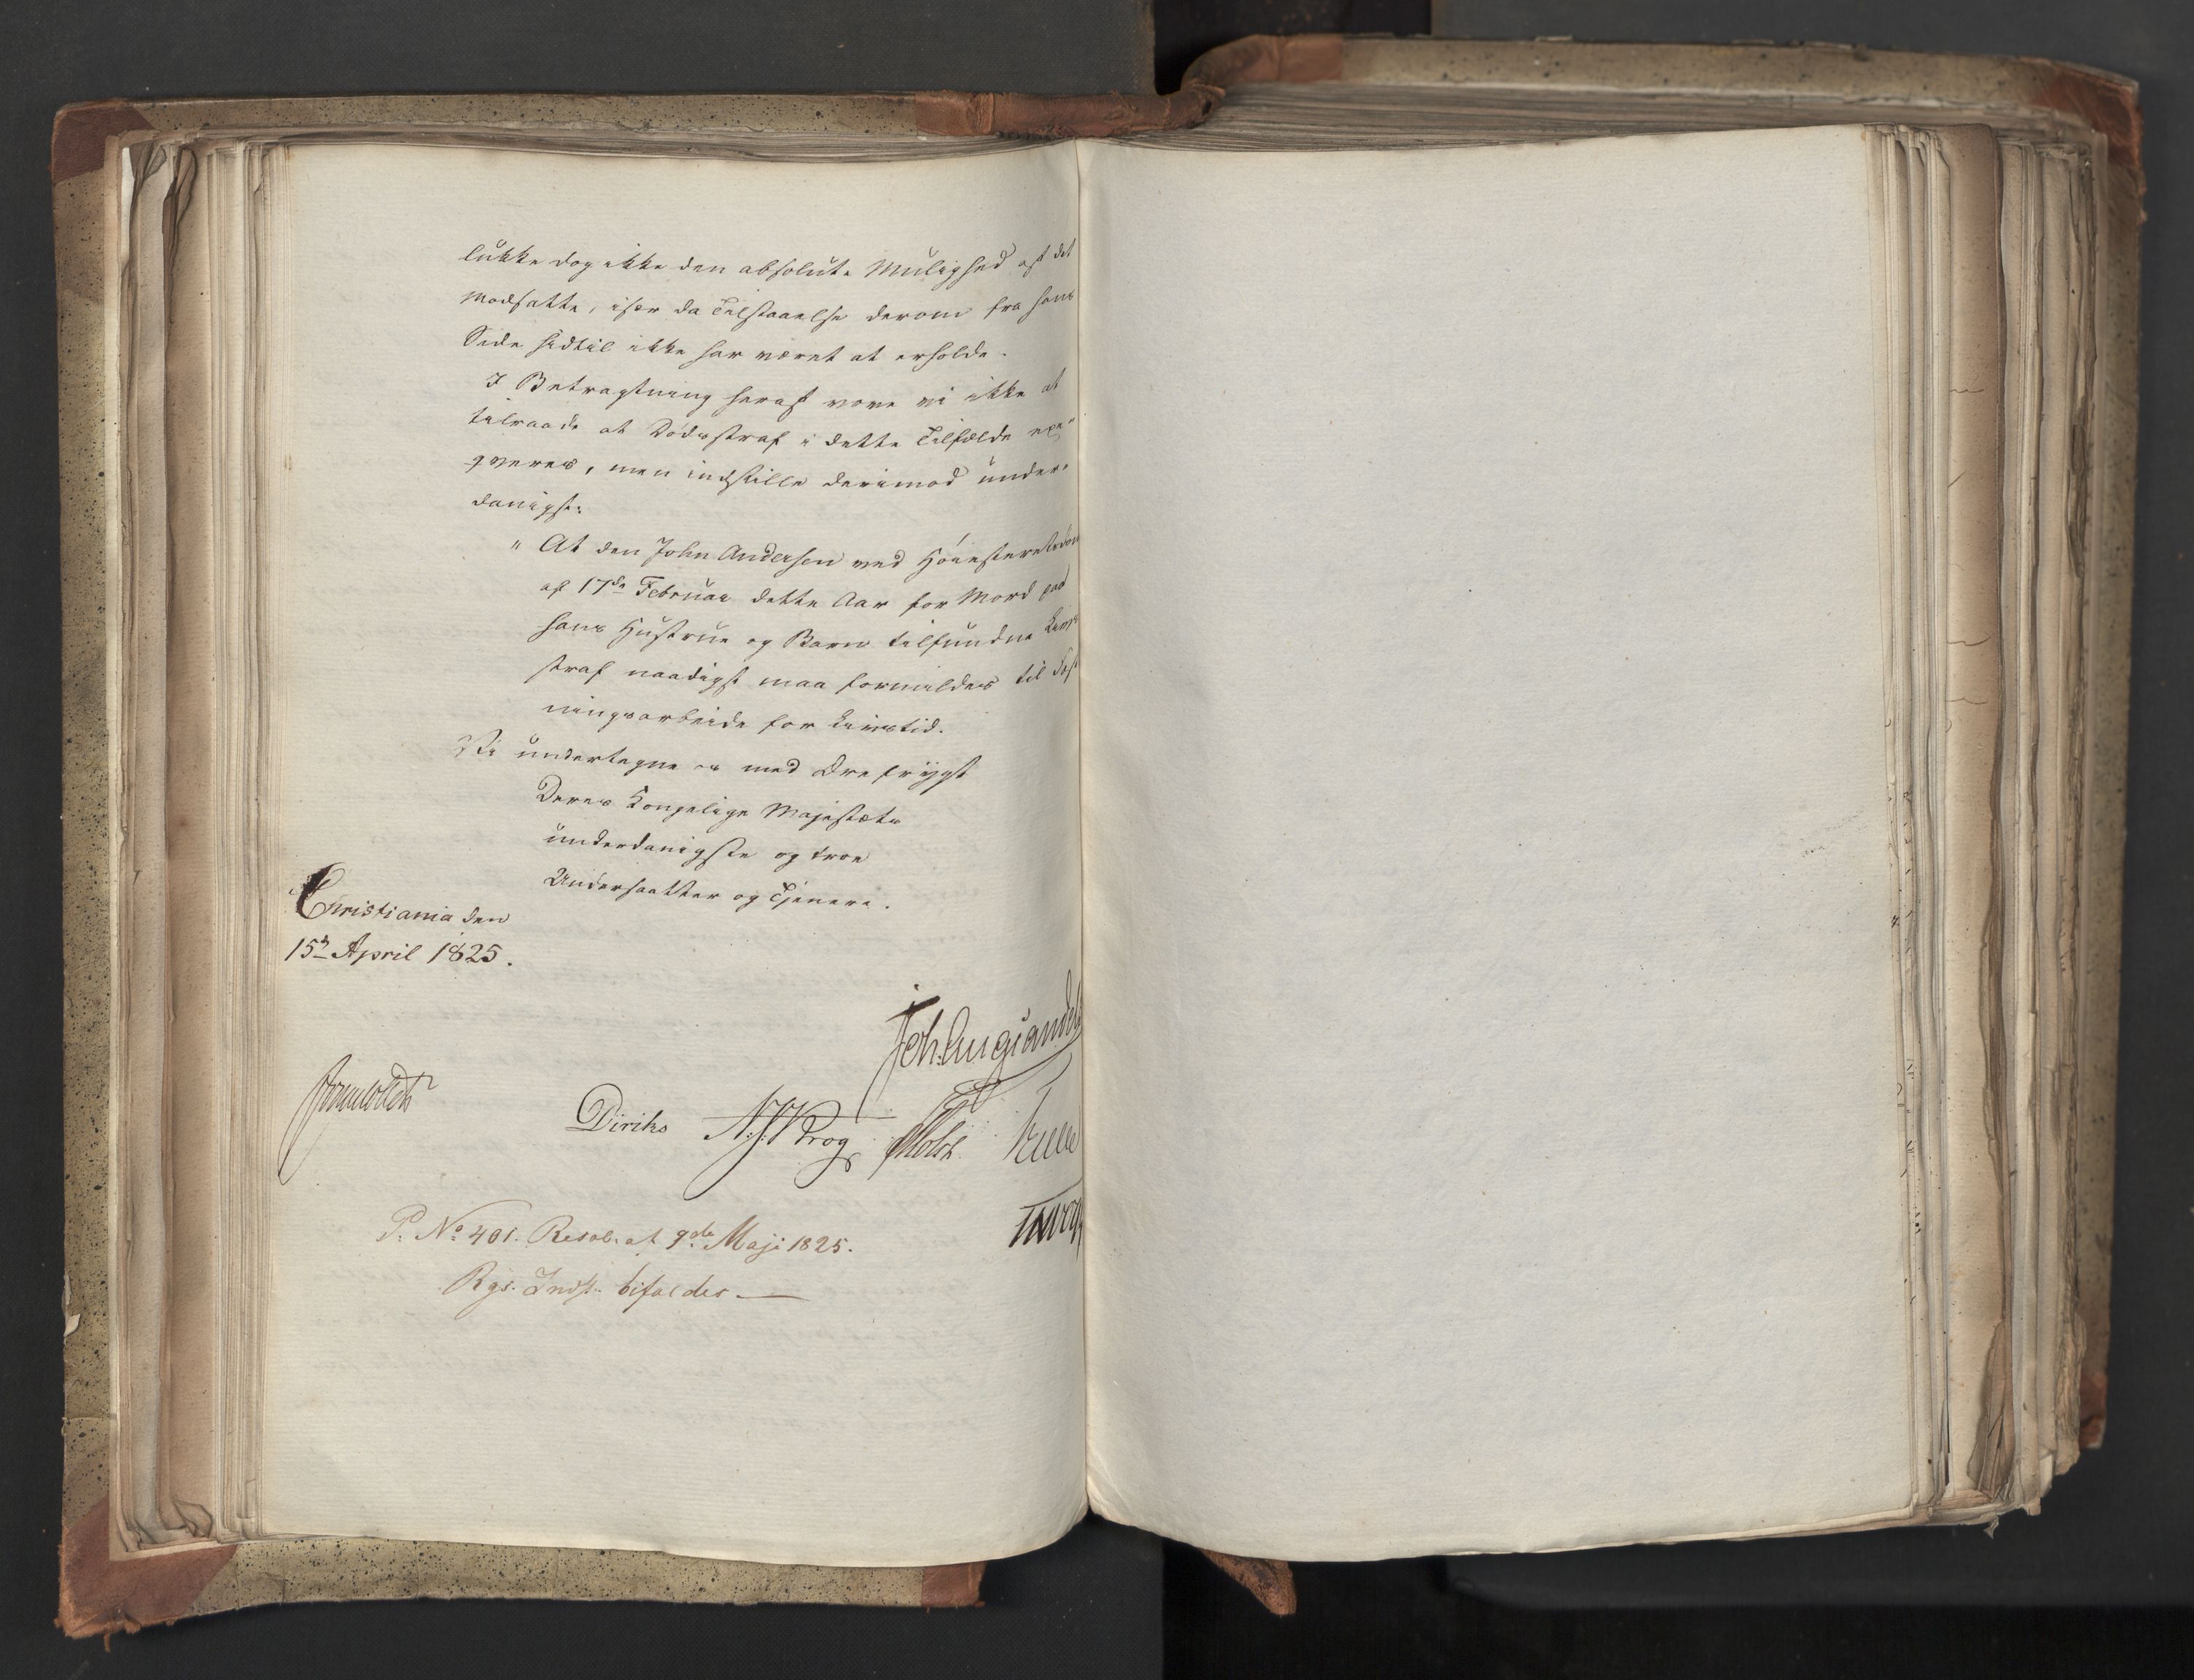 lukke dog ikke den absolute Mulighed af det
modsatte, især da Tilstaaelse derom fra hans
Side hidtil ikke har været at erholde.
I Betragtning heraf vove vi ikke at
tilraade at Dødsstraf i dette Tilfælde exe"
qveres, men indstille derimod under"
danigst:
" At den John Andersen ved Høiesteretsdom
af 17de Februar dette Aar for Mord paa
hans Hustrue og Barn tilfundne Livs
straf naadigst maa formildes til Fæst
ningsarbeide for Livstid.
Vi undertegne os med Ærefrygt
Deres Kongelige Majestæts
underdanigste og troe
Undersaatter og Tjenere.
Christiania den
15de April 1825.
Joh. Aug. Sandels
Diriks N. J. Krog Motzfeldt
P. No 401. Resol. af 9de Maji 1825.
Rgs. Indst. bifaldes.